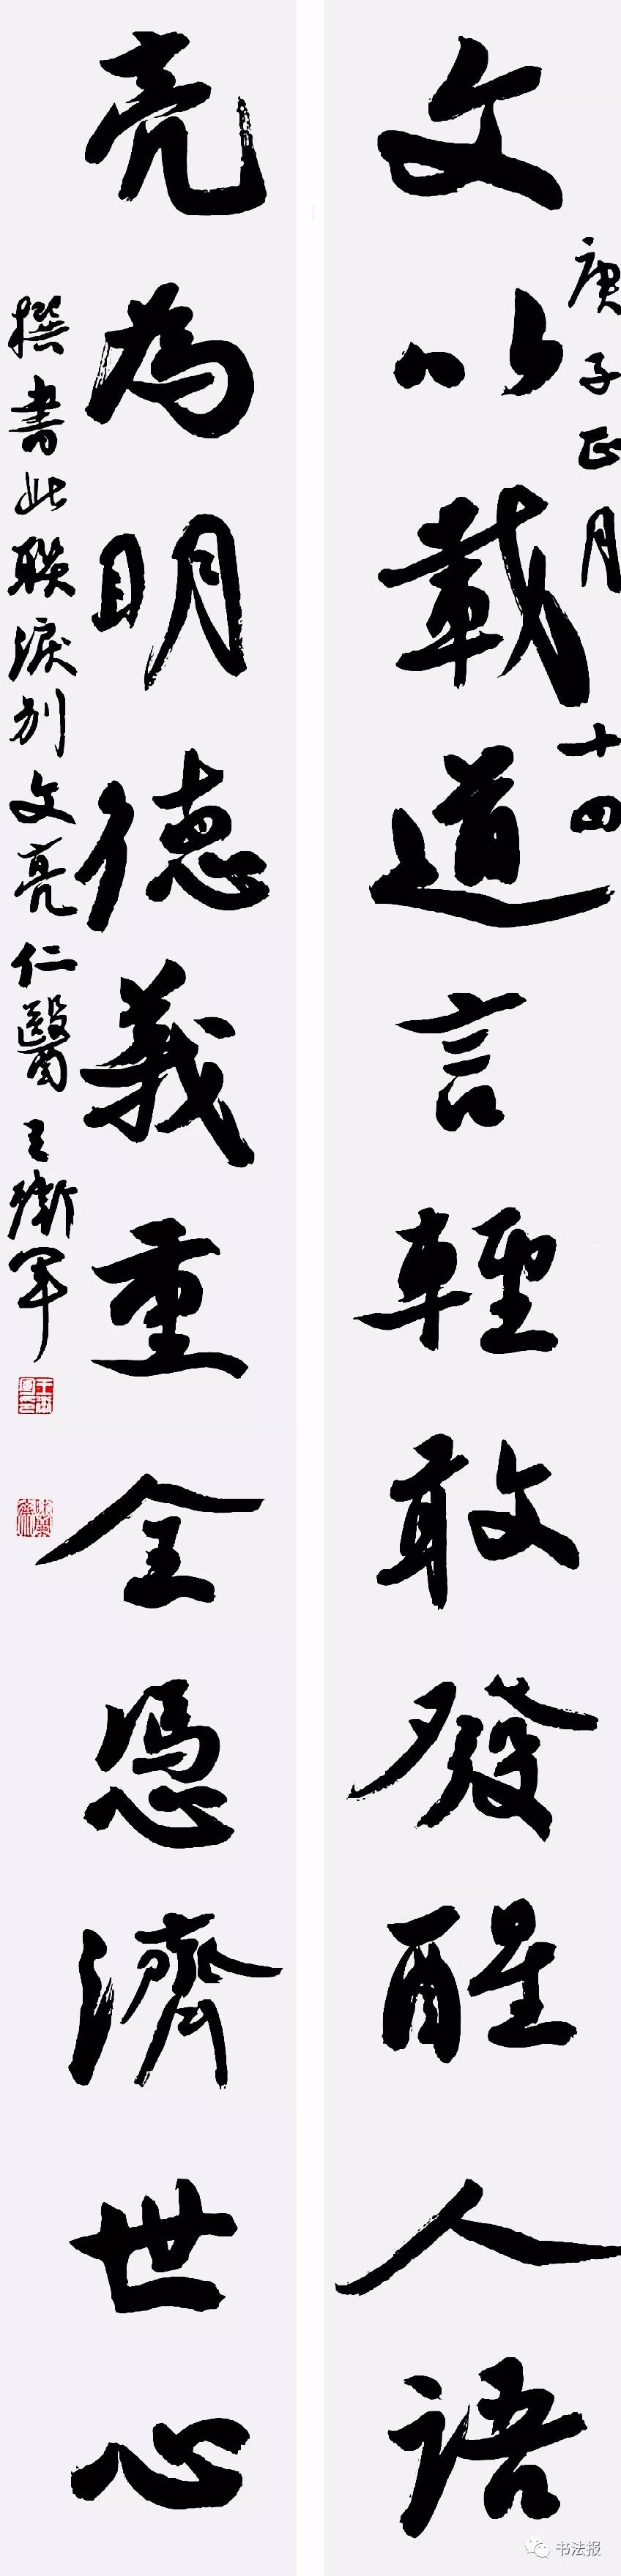 文以載道言輕敢發醒人語
庚子正月十四
亮為明德義重全憑濟世心
撰書此聯淚別文亮仁醫王衛軍
书法报